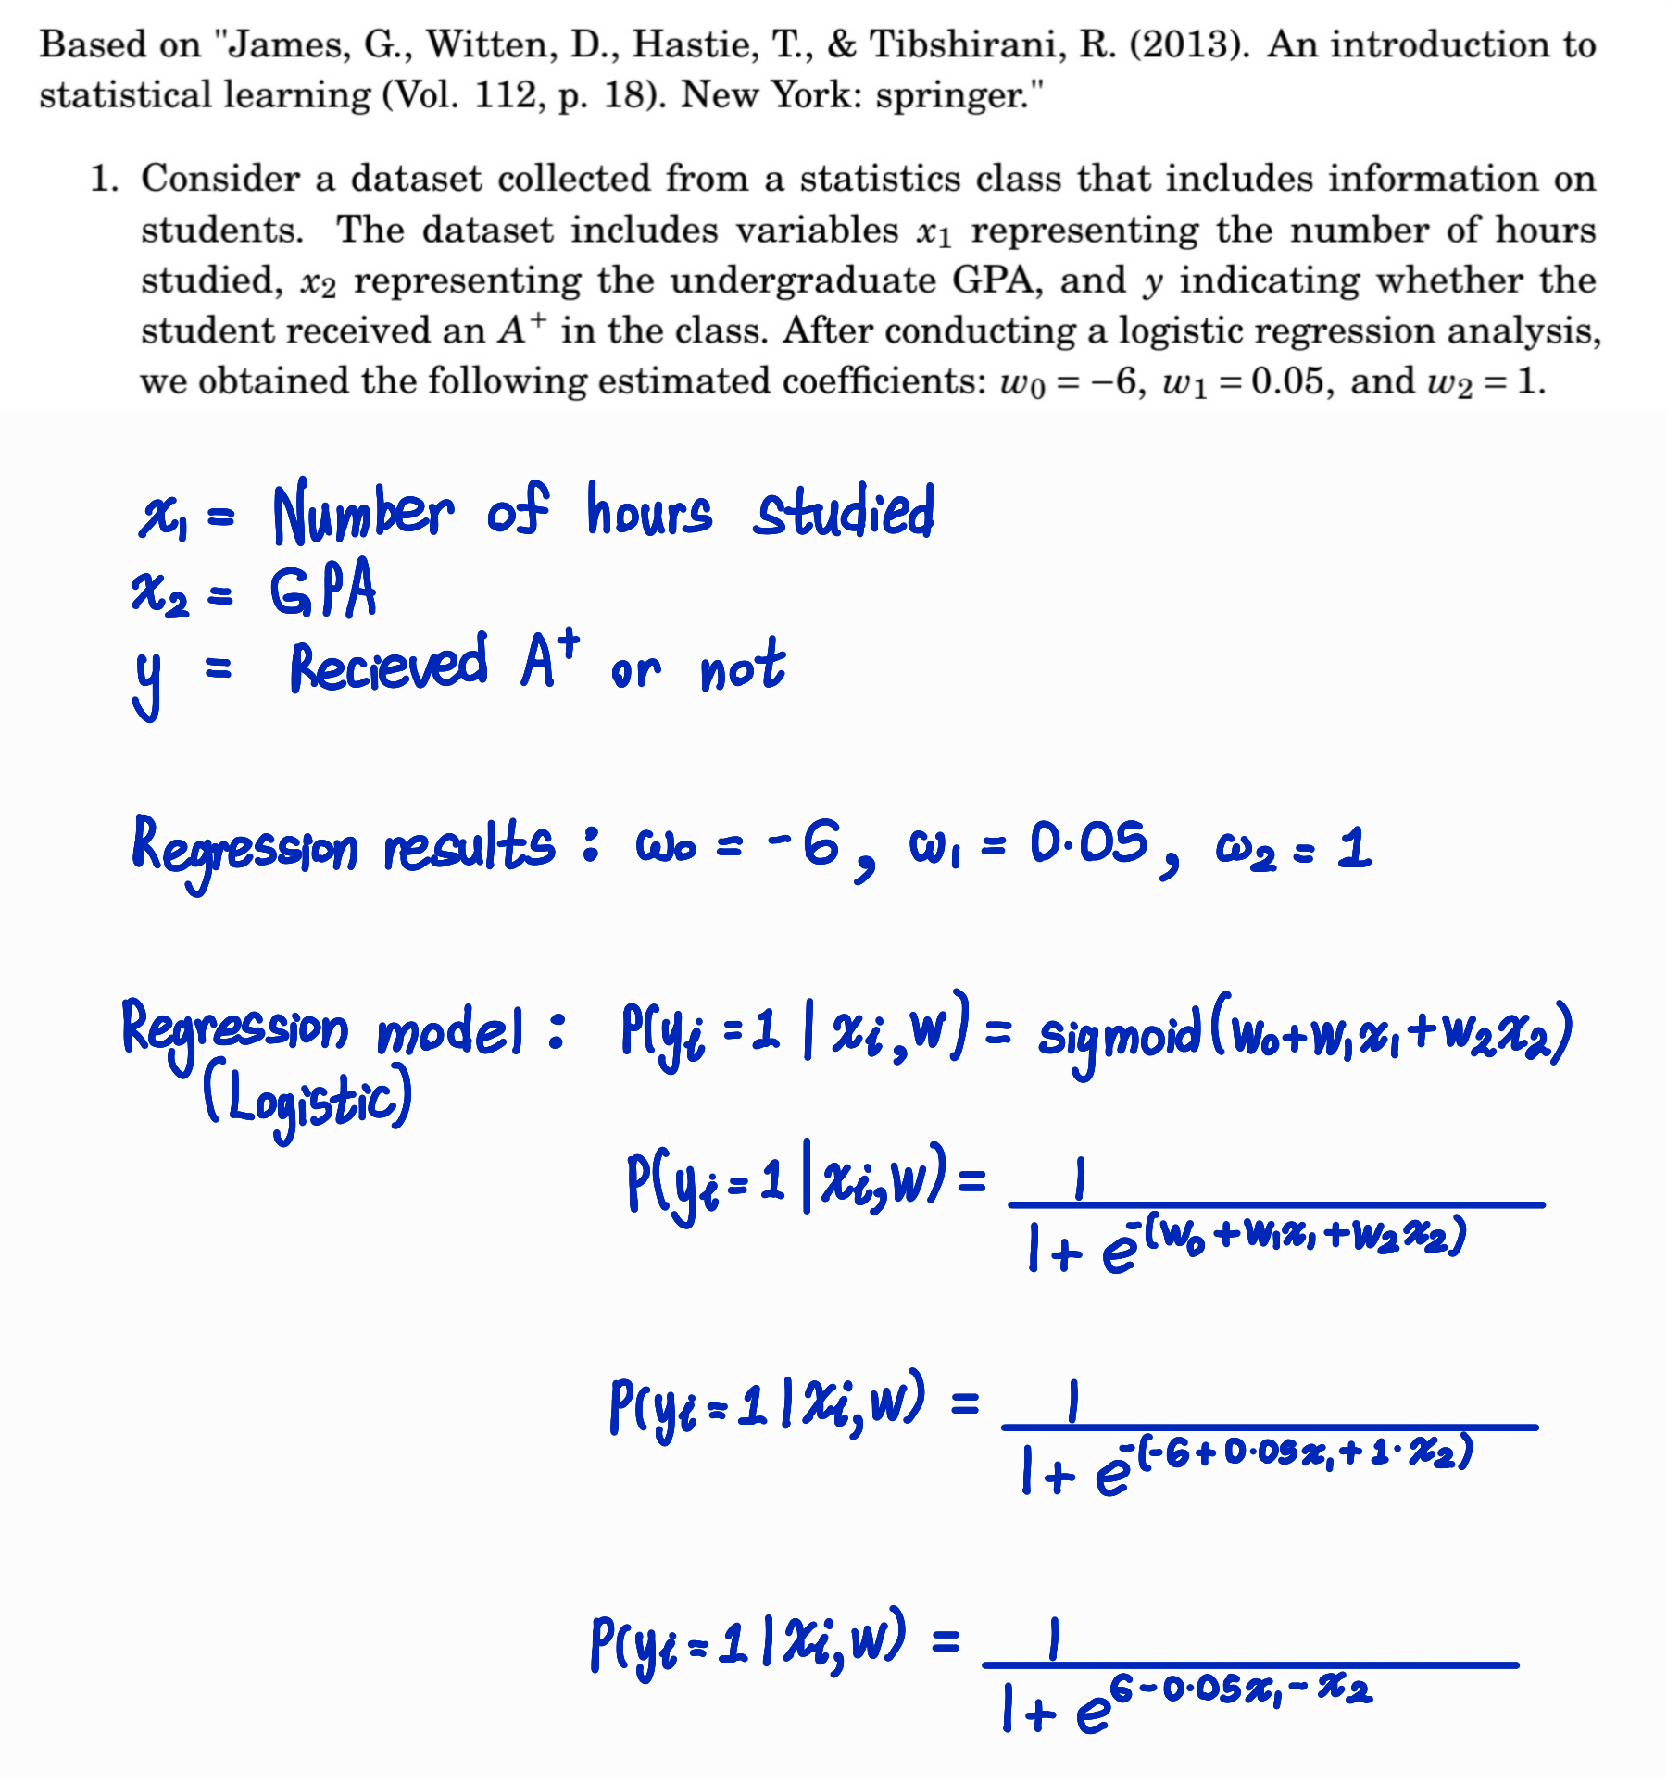 Based on "James, G., Witten, D., Hastie, T., & Tibshirani, R. (2013). An introduction to
statistical learning (Vol. 112, p. 18). New York: springer."
1. Consider a dataset collected from a statistics class that includes information on
students. The dataset includes variables x₁ representing the number of hours
studied, x₂ representing the undergraduate GPA, and y indicating whether the
student received an A⁺ in the class. After conducting a logistic regression analysis,
we obtained the following estimated coefficients: w₀ = −6, w₁ = 0.05, and w₂ = 1.
x₁ = Number of hours studied
x₂ = GPA
y = Recieved A⁺ or not
Regression results : ω₀ = -6, ω₁ = 0.05, ω₂ = 1
Regression model : P(yᵢ = 1 | xᵢ, w) = sigmoid(w₀+w₁x₁+w₂x₂)
(Logistic)
P(yᵢ = 1 | xᵢ, w) = 1 / (1 + e^-(w₀+w₁x₁+w₂x₂))
P(yᵢ = 1 | xᵢ, w) = 1 / (1 + e^-(-6+0.05x₁+1·x₂))
P(yᵢ = 1 | xᵢ, w) = 1 / (1 + e^(6-0.05x₁-x₂))